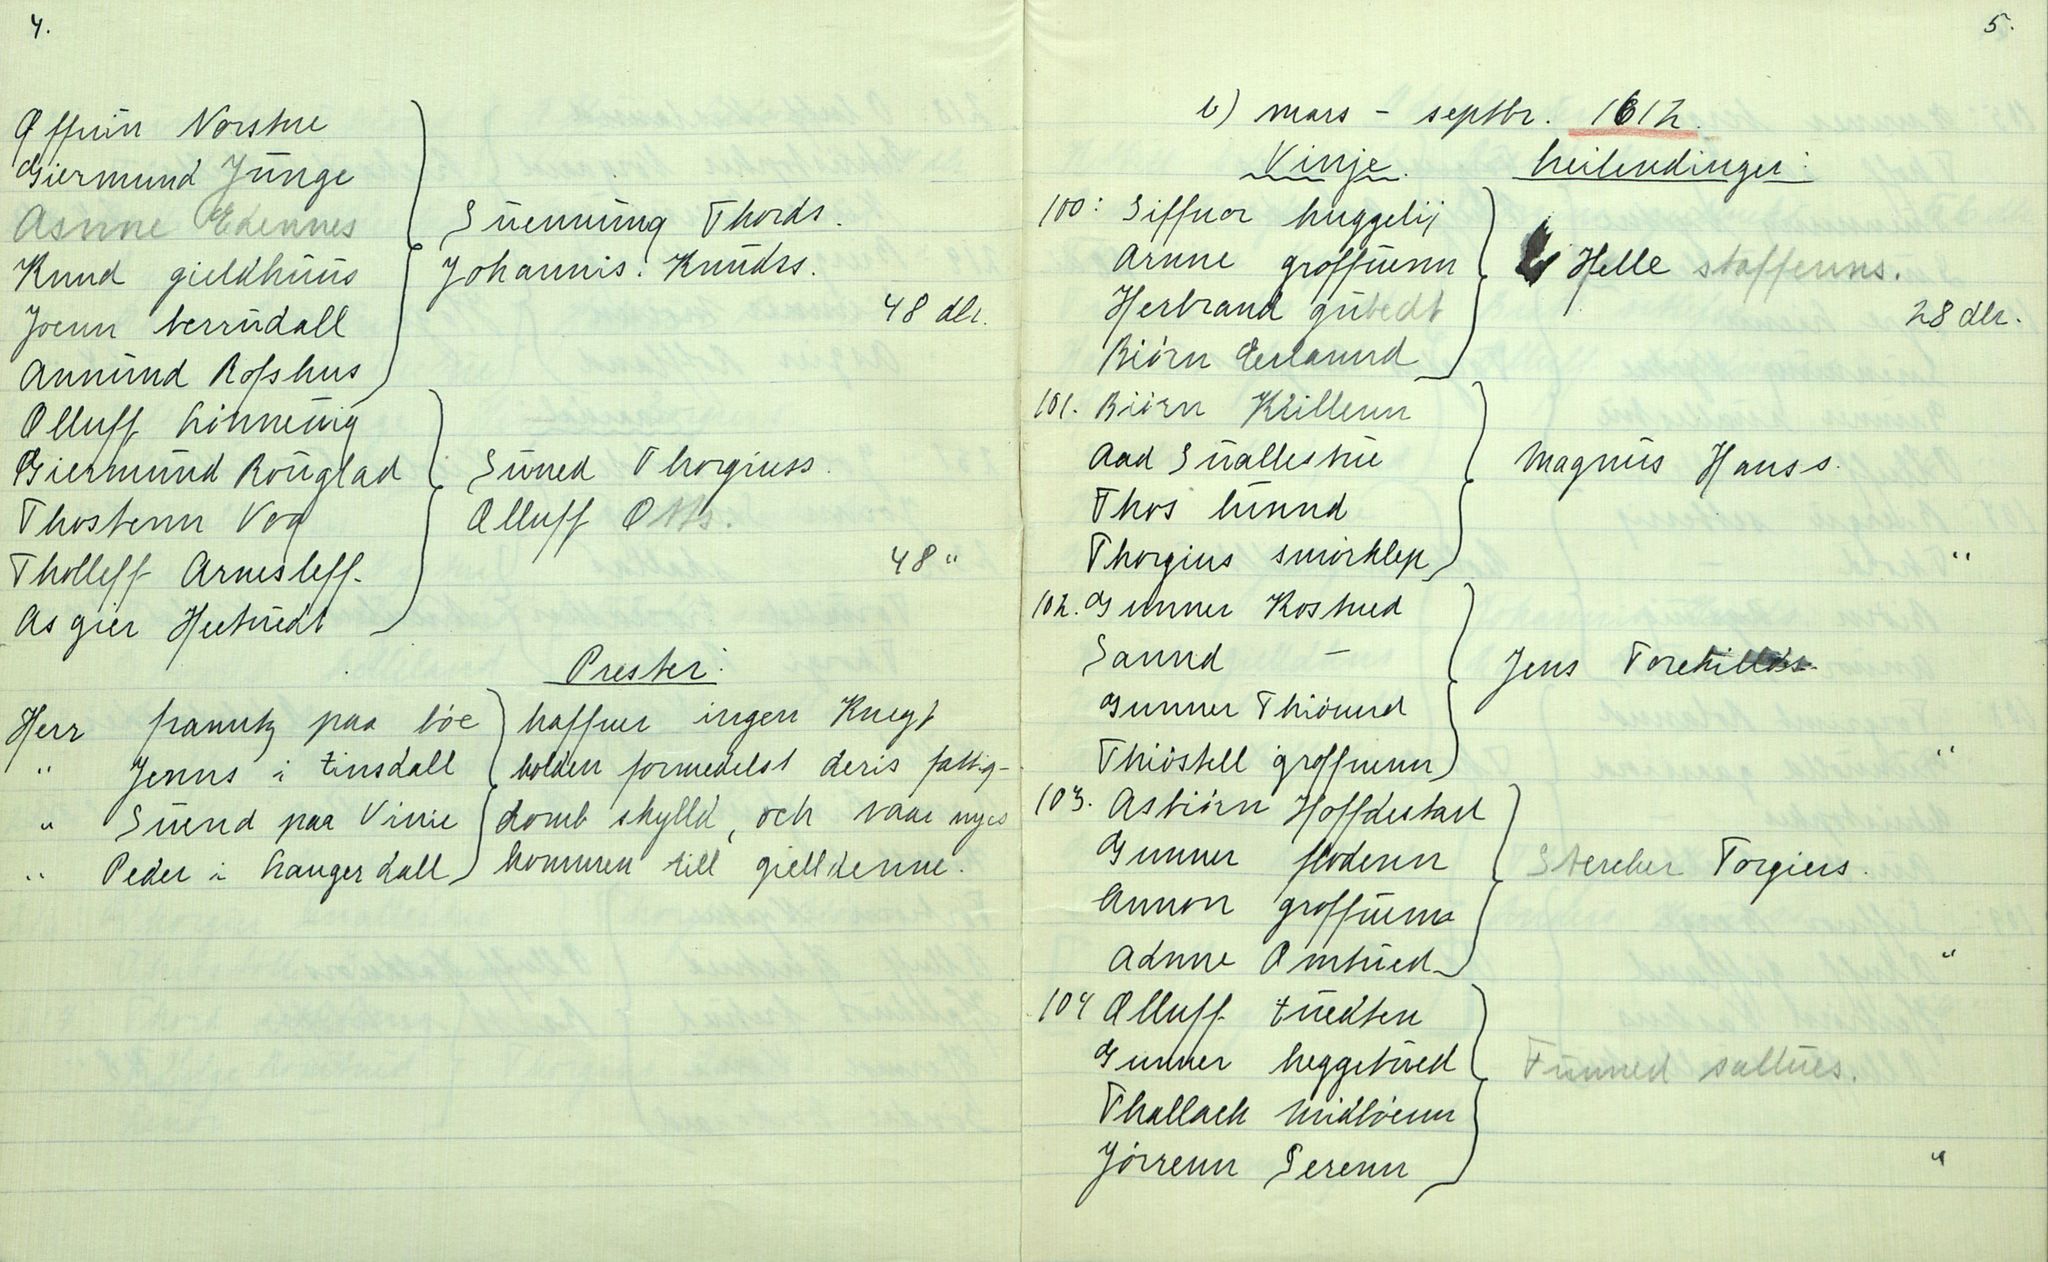 4.
Øffuin Norstue
Giermund Junge
Asnne Edennes
Knud gieldhuus
Joenn berrudall
Annund Rofshus
Suennung Thords.
Johannis. Knudss.
48 dlr.
Olluff Lønneuig
Giermund Rouglad
Thostenn Vaa
Tholleff Arnesleff
Asgier Hertuedt
Suned Thorgiuss.
Olluff Otts.
48 "
Prester:
Herr franntz paa bøe
" Jenns i tinsdall
" Suend paa Vinie
" Peder i Laugerdall
haffuer ingen Knegt
holden formedelst deris fattig-
domb skylld, och vaar nyes
kommen till gielldenne.
5.
b) mars - septbr. 1612.
Vinje. Leilendinger:
100: Siffuor huggelij
Arnne groffuenn
Herbrand gubedt
Biørn Eerlannd
Helle staffenns.
28 dlr.
101. Biørn Kuillenn
Aad Suallestue
Thos lunnd
Thorgius smørklep
Magnus Hanss.
"
102. Gunner Kostued
Sannd —
Gunner Thiønnd
Thiøstell groffuenn
Jens Torekilldss.
"
103. Asbiørn Hoffdestad
Gunner flodenn
Annon groffuenn
Adnne Omtued
Stercker Torgiers.
"
104 Olluff tuedten
Gunner heggetued
Thallack midbøenn
Jørrenn Serenn
Tunned saltues.
"